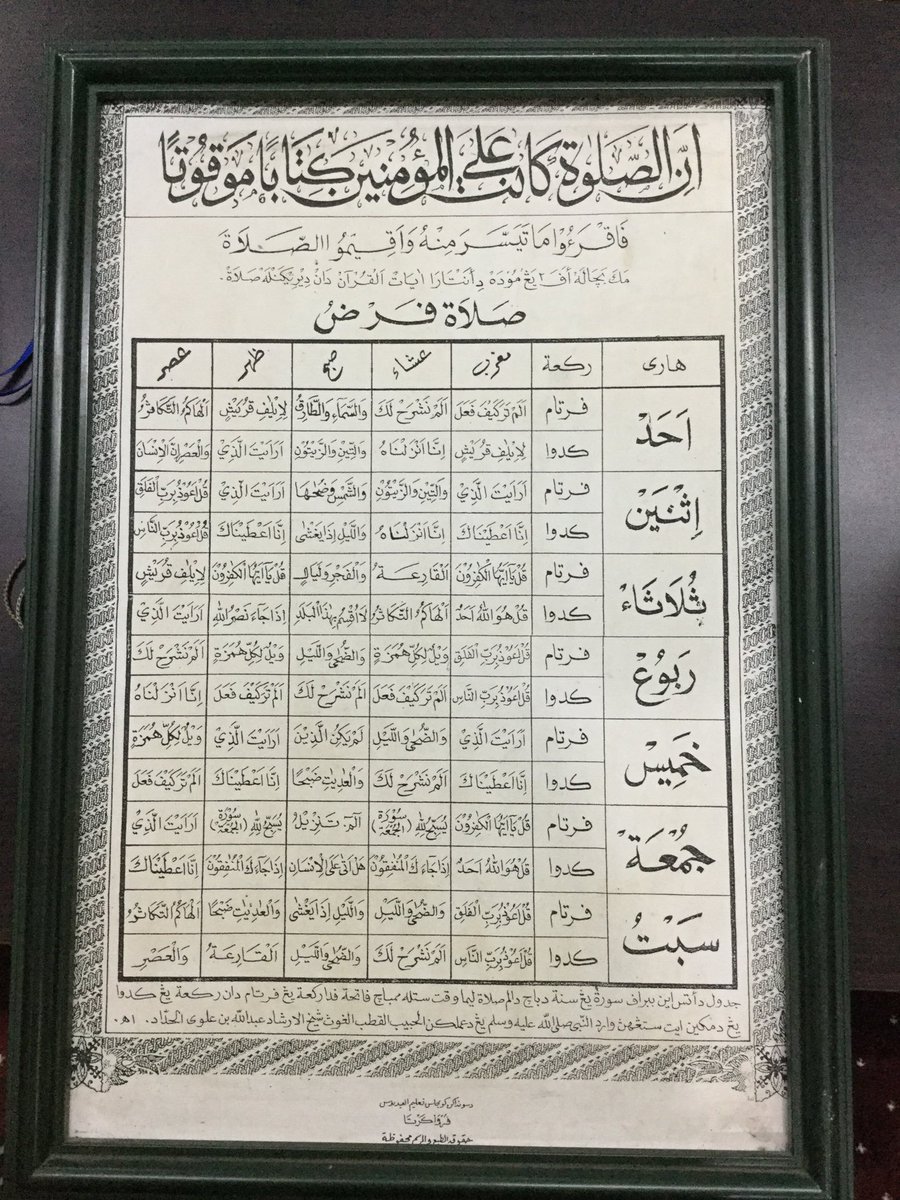 اِنَّ الصَّلٰوةَ كَانَتْ عَلَى الْمُؤْمِنِيْنَ كِتَابًا مَوْقُوْتًا
فَاقْرَءُوْا مَا تَيَسَّرَ مِنْهُ وَاَقِيْمُوا الصَّلَاةَ
مك بچاله اف ٢ يڠ موده دانتارا ايات القرآن دان ديريكنله صلاة.
صَلَاةُ فَرْضُ
هارى ركعة مغرب عشاء صبح ظهر عصر
اَحَدْ
فرتام اَلَمْ تَرَكَيْفَ فَعَلَ اَلَمْ نَشْرَحْ لَكَ وَالسَّمَآءِ وَالطَّارِقْ لِاِيْلٰفِ قُرَيْشٍ اَلْهَاكُمُ التَّكَاثُرُ
كدوا لِاِيْلٰفِ قُرَيْشٍ اِنَّا اَنْزَلْنَاهُ وَالتِّيْنِ وَالزَّيْتُوْنِ اَرَاَيْتَ الَّذِيْ وَالْعَصْرِ اِنَّ الْاِنْسَانَ
اِثْنَيْن
فرتام اَرَاَيْتَ الَّذِيْ وَالتِّيْنِ وَالزَّيْتُوْنِ وَالشَّمْسِ وَضُحٰهَا اَرَاَيْتَ الَّذِيْ قُلْ اَعُوْذُ بِرَبِّ الْفَلَقِ
كدوا اِنَّا اَعْطَيْنَاكَ اِنَّا اَنْزَلْنَاهُ وَاللَّيْلِ اِذَا يَغْشٰى اِنَّا اَعْطَيْنَاكَ قُلْ اَعُوْذُ بِرَبِّ النَّاسِ
ثُلَاثَاءْ
فرتام قُلْ يَآاَيُّهَا الْكٰفِرُوْنَ اَلْقَارِعَةُ وَالْفَجْرِ وَلَيَالٍ قُلْ يَآاَيُّهَا الْكٰفِرُوْنَ لِاِيْلٰفِ قُرَيْشٍ
كدوا قُلْ هُوَ اللّٰهُ اَحَدٌ اَلْهَاكُمُ التَّكَاثُرُ لَآ اُقْسِمُ بِهٰذَا الْبَلَدِ اِذَا جَاءَ نَصْرُ اللهِ اَرَاَيْتَ الَّذِيْ
رَبُوْعْ
فرتام قُلْ اَعُوْذُ بِرَبِّ الْفَلَقِ وَيْلٌ لِكُلِّ هُمَزَةٍ وَالضُّحٰى وَاللَّيْلِ وَيْلٌ لِكُلِّ هُمَزَةٍ اَلَمْ نَشْرَحْ لَكَ
كدوا قُلْ اَعُوْذُ بِرَبِّ النَّاسِ اَلَمْ تَرَكَيْفَ فَعَلَ اَلَمْ نَشْرَحْ لَكَ اَلَمْ تَرَكَيْفَ فَعَلَ اِنَّا اَنْزَلْنَاهُ
خَمِيْسْ
فرتام اَرَاَيْتَ الَّذِيْ وَالضُّحٰى وَاللَّيْلِ لَمْ يَكُنِ الَّذِيْنَ اَرَاَيْتَ الَّذِيْ وَيْلٌ لِكُلِّ هُمَزَةٍ
كدوا اِنَّا اَعْطَيْنَاكَ اَلَمْ نَشْرَحْ لَكَ وَالْعٰدِيٰتِ ضَبْحًا اِنَّا اَعْطَيْنَاكَ اَلَمْ تَرَكَيْفَ فَعَلَ
جُمْعَةْ
فرتام قُلْ يَآاَيُّهَا الْكٰفِرُوْنَ يُسَبِّحُ لِلّٰهِ (سُوْرَةُ الْجُمُعَةِ) الٓمٓ تَنْزِيْلُ يُسَبِّحُ لِلّٰهِ (سُوْرَةُ الْجُمُعَةِ) اَرَاَيْتَ الَّذِيْ
كدوا قُلْ هُوَ اللّٰهُ اَحَدٌ اِذَا جَآءَكَ الْمُنٰفِقُوْنَ هَلْ اَتٰى عَلَى الْاِنْسَانِ اِذَا جَآءَكَ الْمُنٰفِقُوْنَ اِنَّا اَعْطَيْنَاكَ
سَبْتُ
فرتام قُلْ اَعُوْذُ بِرَبِّ الْفَلَقِ وَالضُّحٰى وَاللَّيْلِ وَاللَّيْلِ اِذَا يَغْشٰى وَالْعٰدِيٰتِ ضَبْحًا اَلْهَاكُمُ التَّكَاثُرُ
كدوا قُلْ اَعُوْذُ بِرَبِّ النَّاسِ اَلَمْ نَشْرَحْ لَكَ وَالضُّحٰى وَاللَّيْلِ اَلْقَارِعَةُ وَالْعَصْرِ
جدول دأتس اين ببراف سورة يڠ سنة دباچ دالم صلاة ليما وقت ستله ممباچ فاتحة فدا ركعة يڠ فرتام دان ركعة يڠ كدوا
يڠ دمكين ايت ستڠهن وارد النبي صلى الله عليه وسلم يڠ دعملكن الحبيب القطب الغوث شيخ الارشاد عبدالله بن علوى الحدّاد. اهـ
تعليم العيدروس
فُرْوَاكَرْتَا
حقوق الطبع والرسم محفوظة